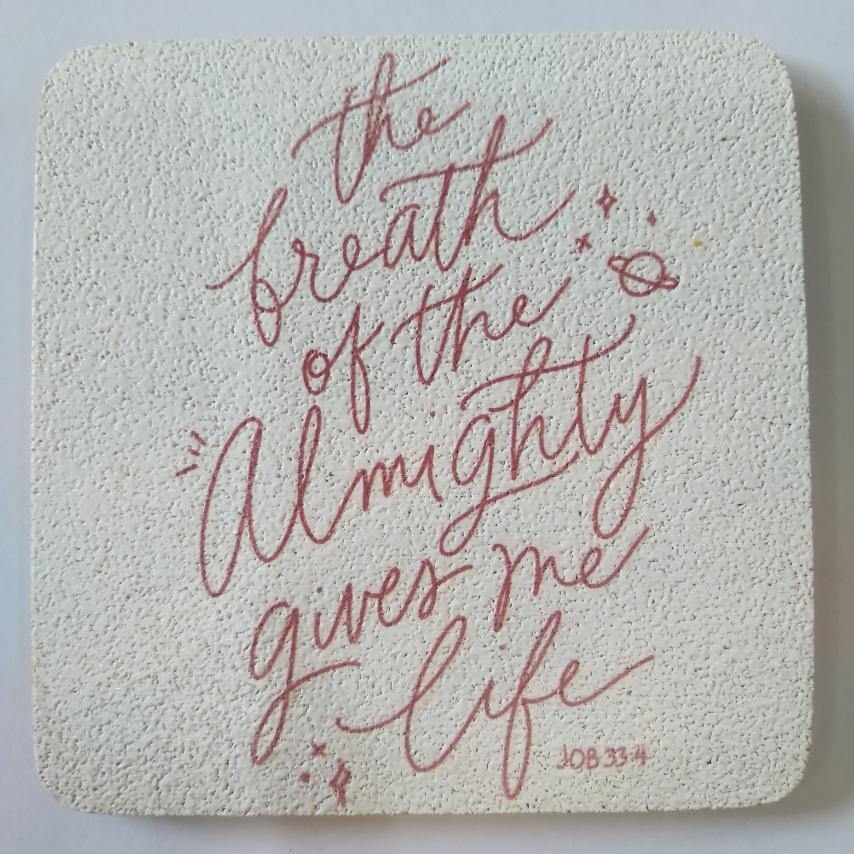 the
breath
of the
Almighty
gives me
life
JOB 33:4